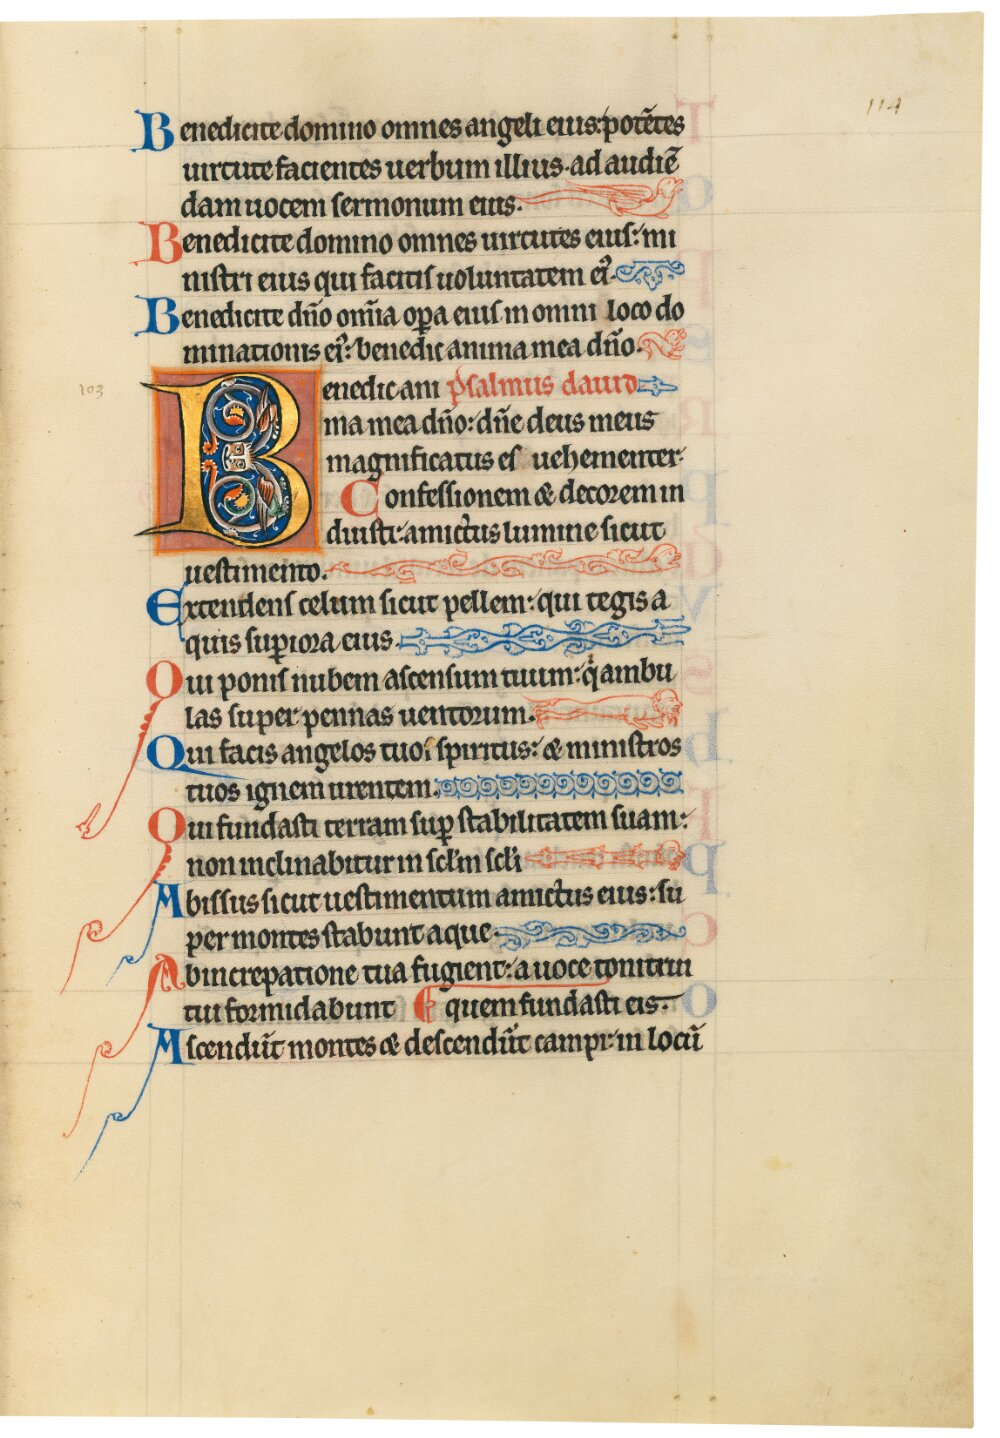 114
Benedicite domino omnes angeli eius: potẽtes
uirtute facientes uerbum illius. ad audiẽ
dam uocem sermonum eius.
Benedicite domino omnes uirtutes eius: mi
nistri eius qui facitis uoluntatem ei᾿.
Benedicite dño om̃ia op̃a eius in omni loco do
minationis ei᾿: benedic anima mea dño.
103
Benedic ani p̃salmus dauid
ma mea dño: dñe deus meus
magnificatus es uehementer.
Confessionem & decorem in
duisti: amictus lumine sicut
uestimento.
Extendens celum sicut pellem: qui tegis a
quis sup̃iora eius.
Qui ponis nubem ascensum tuum: q̇ ambu
las super pennas uentorum.
Qui facis angelos tuos spiritus: & ministros
tuos ignem urentem.
Qui fundasti terram sup̃ stabilitatem suam:
non inclinabitur in scl̃m scl̃i
Abissus sicut uestimentum amictus eius: su
per montes stabunt aque.
Ab increpatione tua fugient: a uoce tonitrui
tui formidabunt quem fundasti eis.
Ascendũt montes & descendũt campi: in locũ